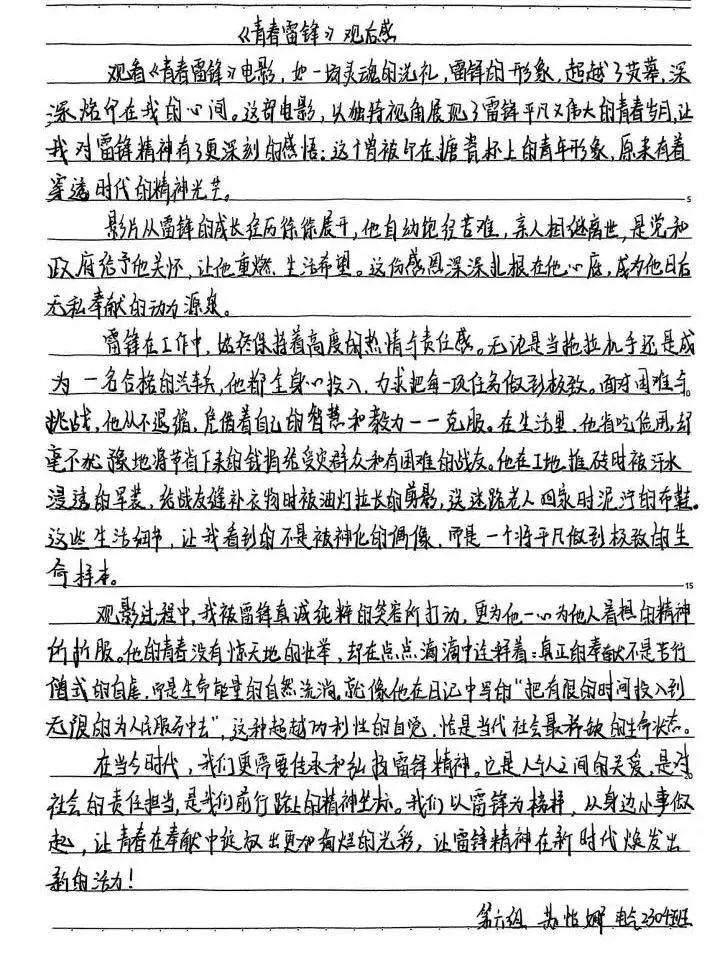 《青春雷锋》观后感
观看《青春雷锋》电影，如一场灵魂的洗礼，雷锋的形象，超越了荧幕，深
深烙印在我的心间。这部电影，以独特视角展现了雷锋平凡又伟大的青春岁月，让
我对雷锋精神有了更深刻的感悟：这个曾被印在搪瓷杯上的青年形象，原来有着
穿透时代的精神光芒。
5
影片从雷锋的成长经历徐徐展开，他自幼饱经苦难，亲人相继离世，是党和
政府给予他关怀，让他重燃生活希望。这份感恩深深扎根在他心底，成为他日后
无私奉献的动力源泉。
雷锋在工作中，始终保持着高度的热情与责任感。无论是当拖拉机手还是成
为一名合格的汽车兵，他都全身心投入，力求把每一项任务做到极致。面对困难与
挑战，他从不退缩，凭借着自己的智慧和毅力一一克服。在生活里，他省吃俭用，却
毫不犹豫地将节省下来的钱捐给受灾群众和有困难的战友。他在工地推砖时被汗水
浸透的军装，给战友缝补衣物时被油灯拉长的剪影，送迷路老人回家时泥泞的布鞋。
这些生活细节，让我看到的不是被神化的偶像，而是一个将平凡做到极致的生
命样本。
15
观影过程中，我被雷锋真诚纯粹的笑容所打动，更为他一心为他人着想的精神
所折服。他的青春没有惊天地的壮举，却在点点滴滴中诠释着：真正的奉献不是苦行
僧式的自虐，而是生命能量的自然流淌。就像他在日记中写的“把有限的时间投入到
无限的为人民服务中去”，这种超越功利性的自觉，恰是当代社会最稀缺的生命状态。
在当今时代，我们更需要传承和弘扬雷锋精神。它是人与人之间的关爱，是对
20
社会的责任担当，是我们前行路上的精神坐标。我们以雷锋为榜样，从身边小事做
起，让青春在奉献中绽放出更加绚烂的光彩，让雷锋精神在新时代焕发出
新的活力！
第六组 苏怡娜 电气2304班